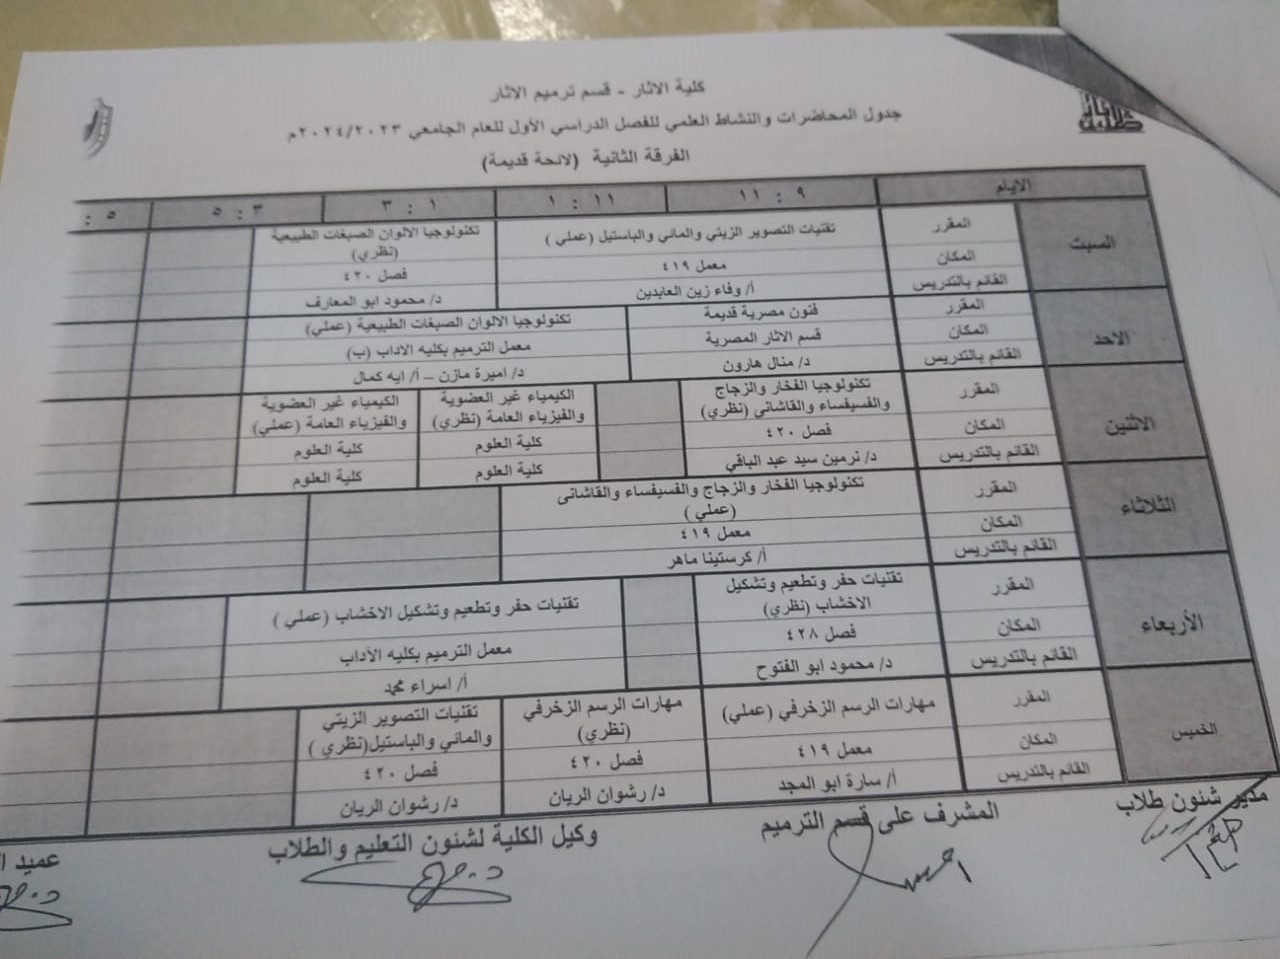 كلية الاثار - قسم ترميم الاثار
جدول المحاضرات والنشاط العلمي للفصل الدراسي الأول للعام الجامعي ٢٠٢٤/٢٠٢٣م
الفرقة الثانية (لائحة قديمة)
الايام ٩ : ١١ ١١ : ١ ١ : ٣ ٣ : ٥ ٥ :
السبت
المقرر تقنيات التصوير الزيتي والمائي والباستيل (عملي ) تكنولوجيا الالوان الصبغات الطبيعية
(نظري)
المكان معمل ٤١٩ فصل ٤٢٠
القائم بالتدريس أ/ وفاء زين العابدين د/ محمود ابو المعارف
الاحد
المقرر فنون مصرية قديمة تكنولوجيا الالوان الصبغات الطبيعية (عملي)
المكان قسم الاثار المصرية معمل الترميم بكليه الاداب (ب)
القائم بالتدريس د/ منال هارون د/ اميرة مازن – أ/ ايه كمال
الاثنين
المقرر تكنولوجيا الفخار والزجاج الكيمياء غير العضوية الكيمياء غير العضوية
والفسيفساء والقاشانى (نظري) والفيزياء العامة (نظري) والفيزياء العامة (عملي)
المكان فصل ٤٢٠ كلية العلوم كلية العلوم
القائم بالتدريس د/ نرمين سيد عبد الباقي كلية العلوم كلية العلوم
الثلاثاء
المقرر تكنولوجيا الفخار والزجاج والفسيفساء والقاشانى
(عملي )
المكان معمل ٤١٩
القائم بالتدريس أ/ كرستينا ماهر
الأربعاء
المقرر تقنيات حفر وتطعيم وتشكيل تقنيات حفر وتطعيم وتشكيل الاخشاب (عملي )
الاخشاب (نظري)
المكان فصل ٤٢٨ معمل الترميم بكليه الآداب
القائم بالتدريس د/ محمود ابو الفتوح أ/ اسراء محمد
الخميس
المقرر مهارات الرسم الزخرفي (عملي) مهارات الرسم الزخرفي تقنيات التصوير الزيتي
(نظري) والمائي والباستيل(نظري )
المكان معمل ٤١٩ فصل ٤٢٠ فصل ٤٢٠
القائم بالتدريس أ/ سارة ابو المجد د/ رشوان الريان د/ رشوان الريان
مدير شئون طلاب المشرف على قسم الترميم وكيل الكلية لشئون التعليم والطلاب عميد